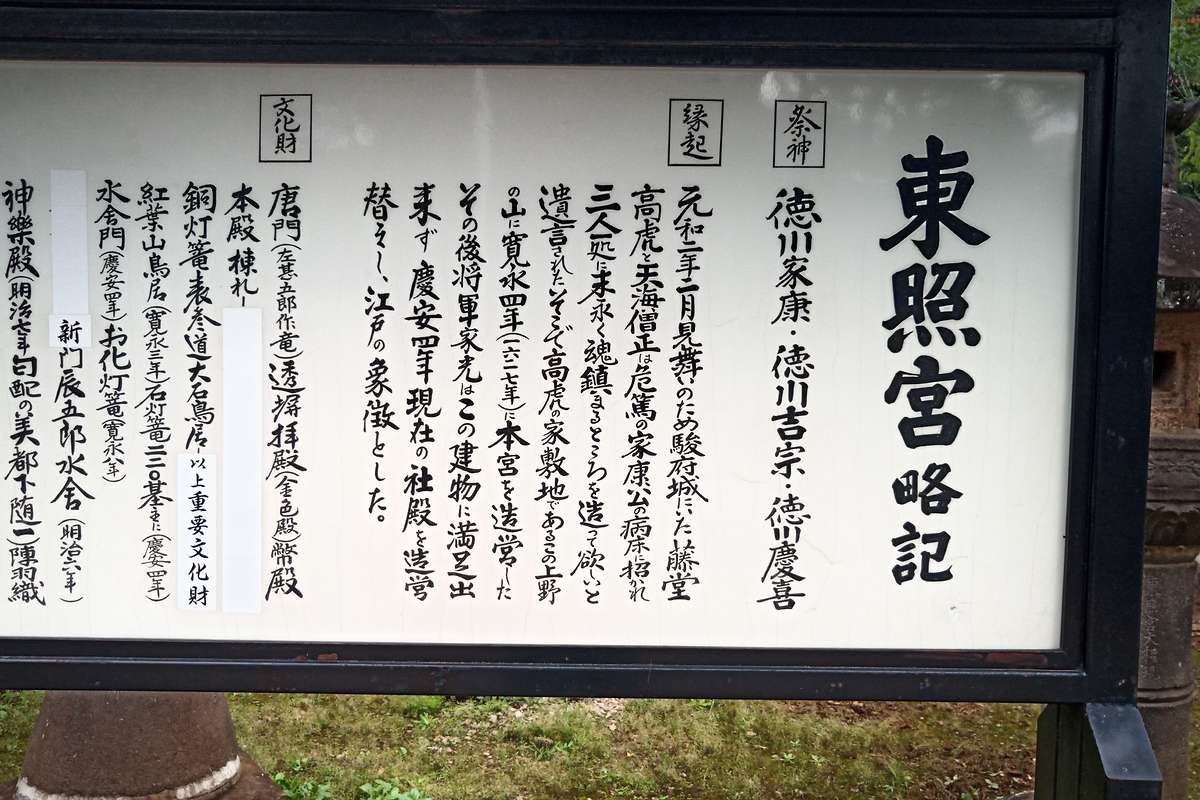 東照宮略記
祭神
徳川家康・徳川吉宗・徳川慶喜
縁起
元和二年二月見舞いのため駿府城にいた藤堂
高虎と天海僧正は危篤の家康公の病床に招かれ
三人一処に末永く魂鎮まるところを造って欲しいと
遺言されたそこで高虎の家敷地であるこの上野
の山に寛永四年(一六二七年)に本宮を造営した
その後将軍家光はこの建物に満足出
来ず 慶安四年現在の社殿を造営
替えし、江戸の象徴とした。
文化財
唐門(左甚五郎作竜)透塀拝殿(金色殿)幣殿
本殿棟札—
銅灯篭表参道大石鳥居—以上重要文化財
紅葉山鳥居(寛永三年)石灯篭二二〇基主に(慶安四年)
水舎門(慶安四年)お化灯篭(寛永八年)
新門辰五郎水舎(明治六年)
神樂殿(明治七年勾配の美都下随一)陣羽織